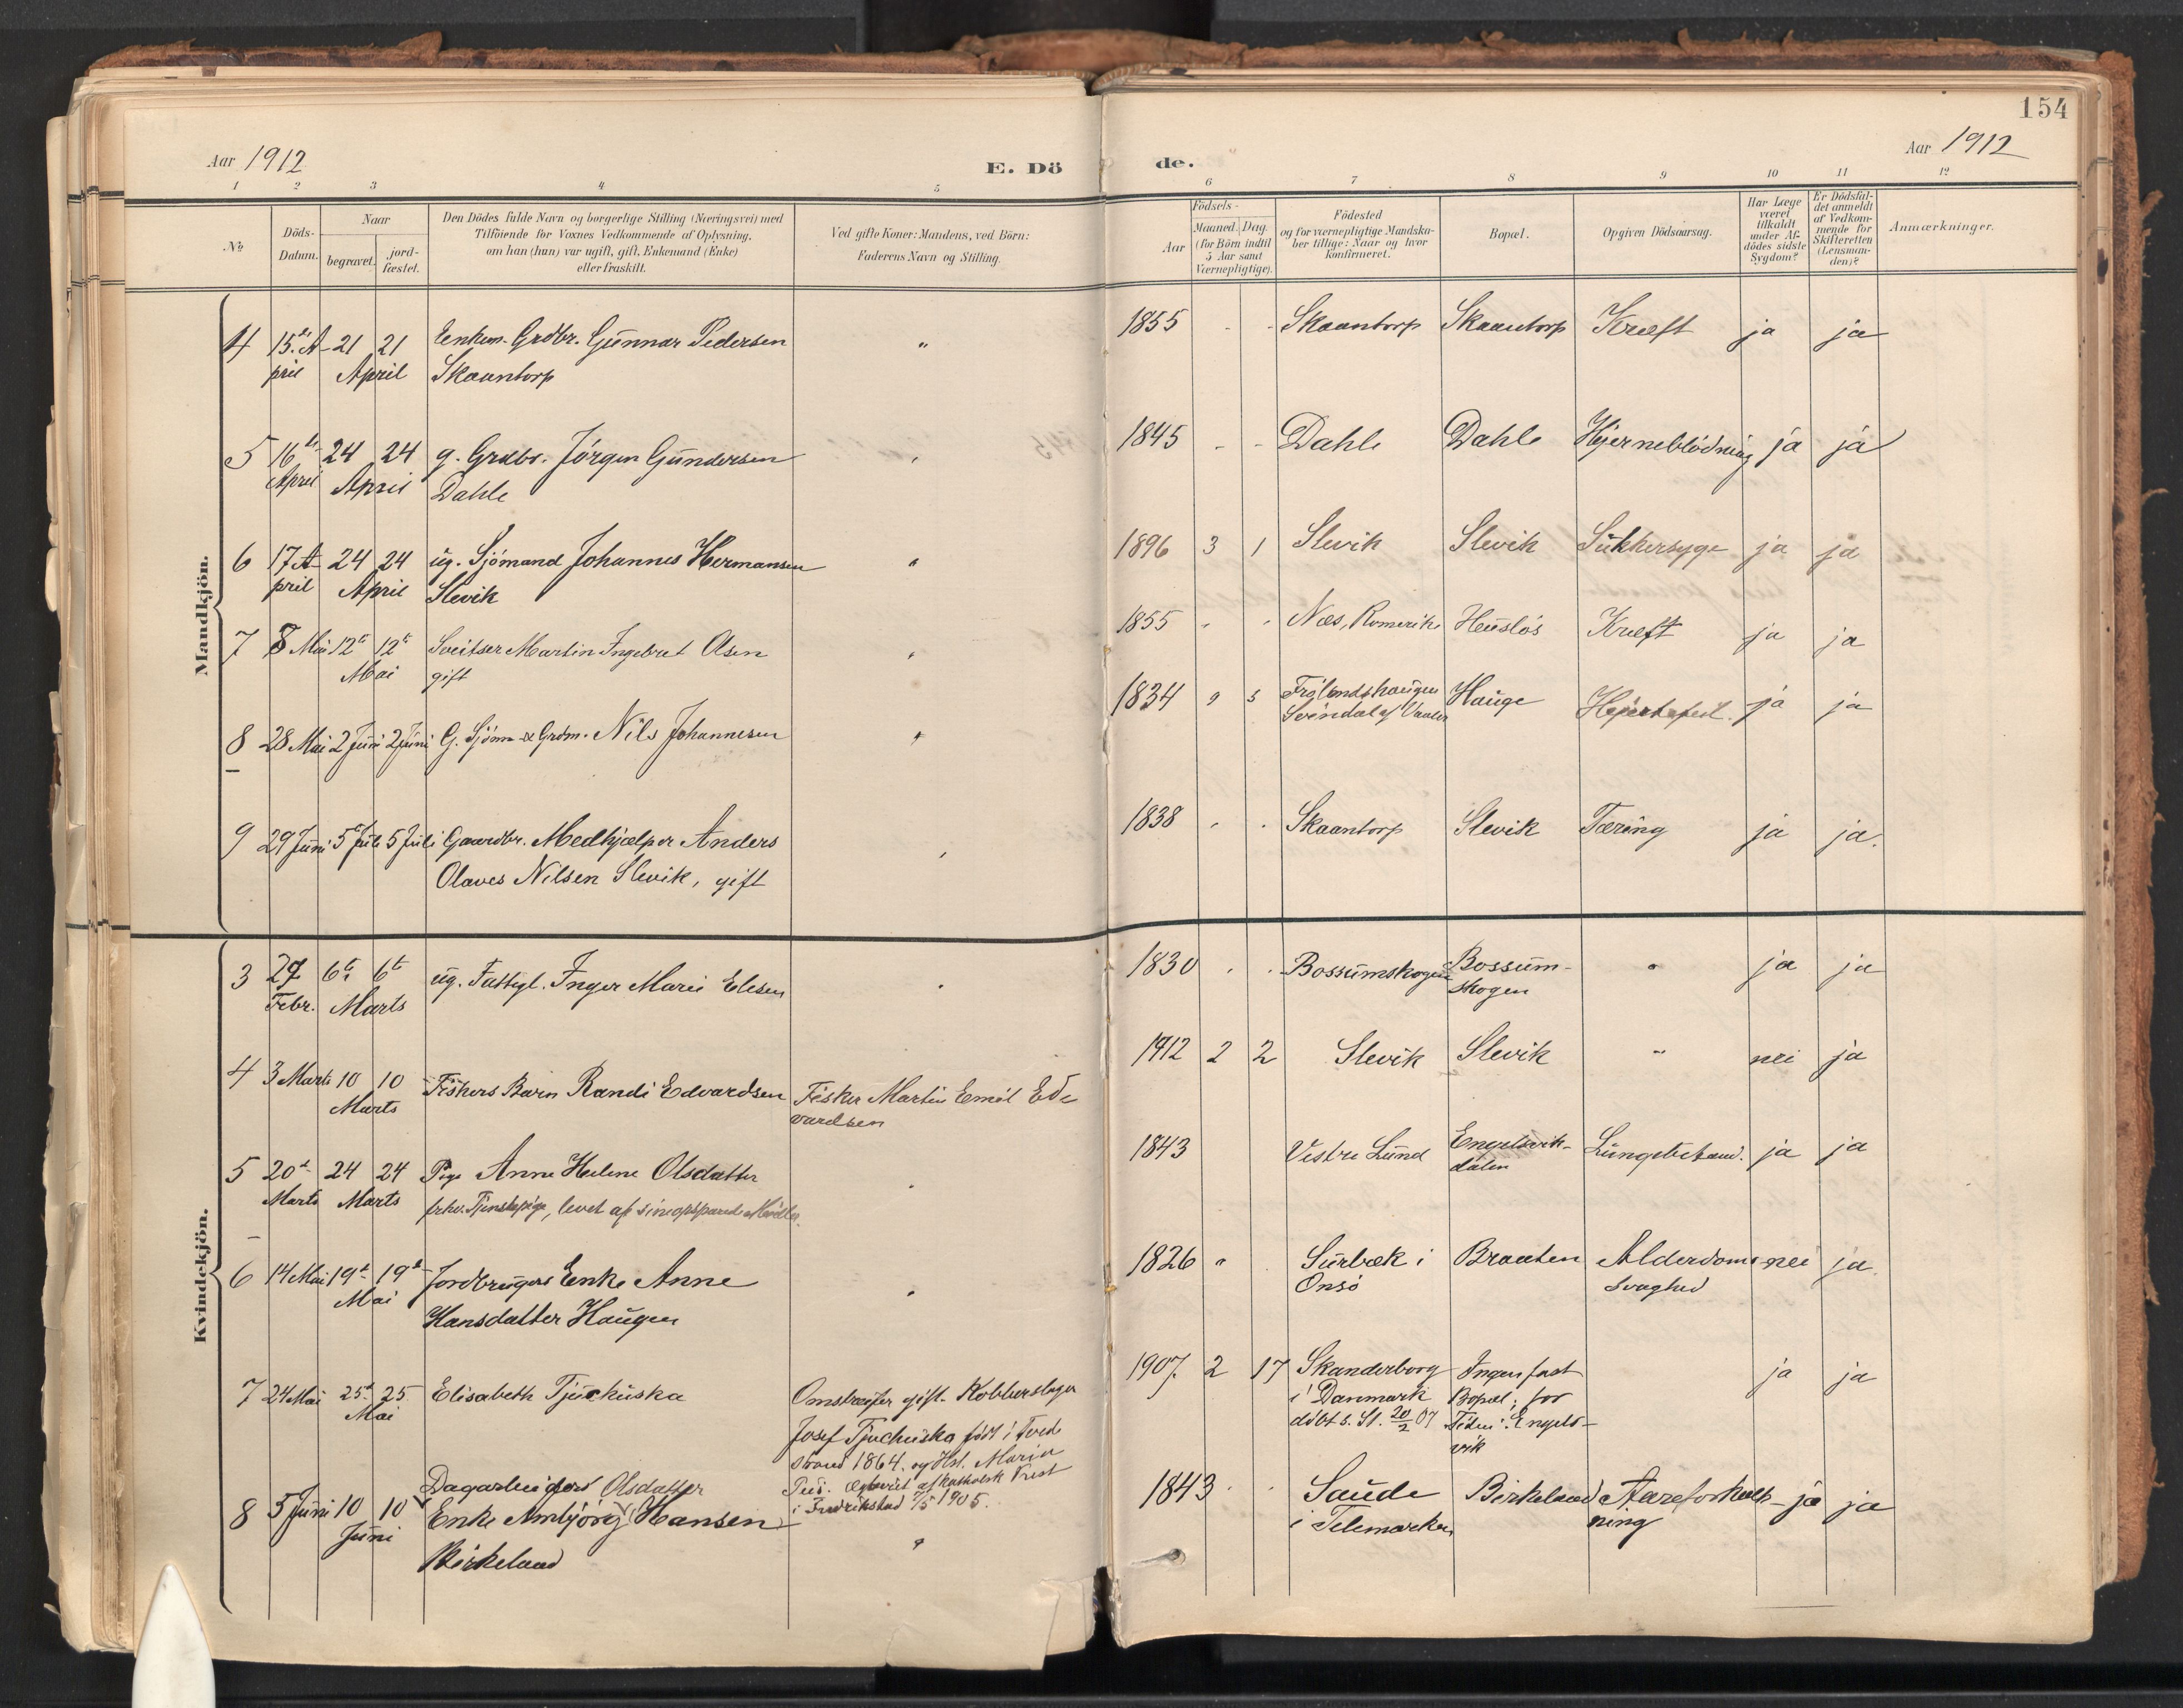 154
Aar 1912
E. Dö
de.
Aar 1912
1 2 3 4 5 6 7 8 9 10 11 12
No
Döds-
Datum.
Naar
begravet.
jord-
fæstet.
Den Dödes fulde Navn og borgerlige Stilling (Næringsvei) med
Tilföiende for Voxnes Vedkommende af Oplysning,
om han (hun) var ugift, gift, Enkemand (Enke)
eller fraskilt.
Ved gifte Koner: Mandens, ved Börn:
Faderens Navn og Stilling.
Födsels-
Aar
Maaned. Dag.
(for Börn indtil
5 Aar samt
Værnepligtige).
Födested
og for værnepligtige Mandska-
ber tillige: Naar og hvor
konfirmeret.
Bopæl.
Opgiven Dödsaarsag.
Har Læge
været
tilkaldt
under Af-
dödes sidste
Sygdom?
Er Dödsfal-
det anmeldt
af Vedkom-
mende for
Skifteretten
(Lensman-
den)?
Anmærkninger.
Mandkjön.
4 15de A- 21 21 Enkem. Grdbr. Gunnar Pedersen " 1855 - - Skaantorp Skaantorp Kræft ja ja
pril April Skaantorp
5 16de 24 24 g. Grdbr. Jörgen Gundersen " 1845 - - Dahle Dahle Hjerneblödning ja ja
April April Dahle
6 17 A- 24 24 ug. Sjömand Johannes Hermansen " 1896 3 1 Slevik Slevik Sukkersyge ja ja
pril April Slevik
7 8 Mai 12te 12te Sveitser Martin Ingebret Olsen " 1855 " " Næs, Romerike Huslös Kræft ja ja
Mai gift
8 28 Mai 2 Juni 2 Juni G. Sjöm. & Grdm. Nils Johannesen " 1834 9 5 Frölandshaugen Hauge Hjertefeil. ja ja
Svindal af Vaaler
9 29 Juni 5 Juli 5 Juli Gaardbr. Medhjælper Anders " 1838 " " Skaantorp Slevik Tæring ja ja.
Olaves Nilsen Slevik, gift
Kvindekjön.
3 27 6te 6te ug. Fattigl. Inger Marie Elesen " 1830 " " Bossumskogen Bossum- " ja ja
Febr. Marts skogen
4 3 Marts 10 10 Fiskers Barn Randi Edvardsen Fisker Martin Emil Ed- 1912 2 2 Slevik Slevik " nei ja
Marts vardsen
5 20de 24 24 Pige Anne Helene Olsdatter " 1843 Vestre Lund Engelsvik- Lungebetænd. ja ja
Marts Marts frhv. Tjenstepige, levet af sine opsparede Midler. dalen
6 14 Mai 19de 19de Jordbrugers Enke Anne " 1826 " Surbæk i Braaten Alderdoms nei ja.
Mai Hansdatter Haugen Onsö Svaghed
7 24 Mai 25de 25 Elisabeth Tjuchuska Omstreifer gift. Kobberslager 1907. 2 17 Skanderborg Ingen fast ja ja
Mai Josef Tjuchuska född i i Danmark Bopæl; for
strand 1864. og Hst. Maria döbt s. St. 20/2 07 Tiden: Engels-
af katholsk Prest vik
i Fredrikstad 7/5 1905.
Dagarbeiders Olsdatter
8 5 Juni 10 10 Enke Ambjörg Hansen " 1843 " " Saude Birkeland Aareforkalk- ja ja
Juni Birkeland i Telemarken ning